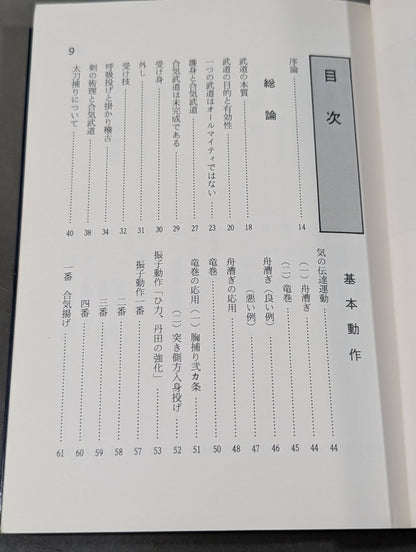 目次
総論
序論 14
武道の本質 18
武道の目的と有効性 20
一つの武道はオールマイティではない 23
護身と合気武道 27
合気武道は未完成である 29
受け身 30
外し 31
受け技 32
呼吸投げと掛かり稽古 34
剣の術理と合気武道 38
太刀捕りについて 40
基本動作
気の伝達運動 44
(一) 舟漕ぎ 44
(二) 竜巻 45
舟漕ぎ (良い例) 46
(悪い例) 47
舟漕ぎの応用 48
竜巻 50
竜巻の応用 (一) 胸捕り弐カ条 51
(二) 突き側方入身投げ 52
振子動作「ひ力、丹田の強化」 53
振子動作一番 57
二番 58
三番 59
四番 60
一番 合気揚げ 61
9